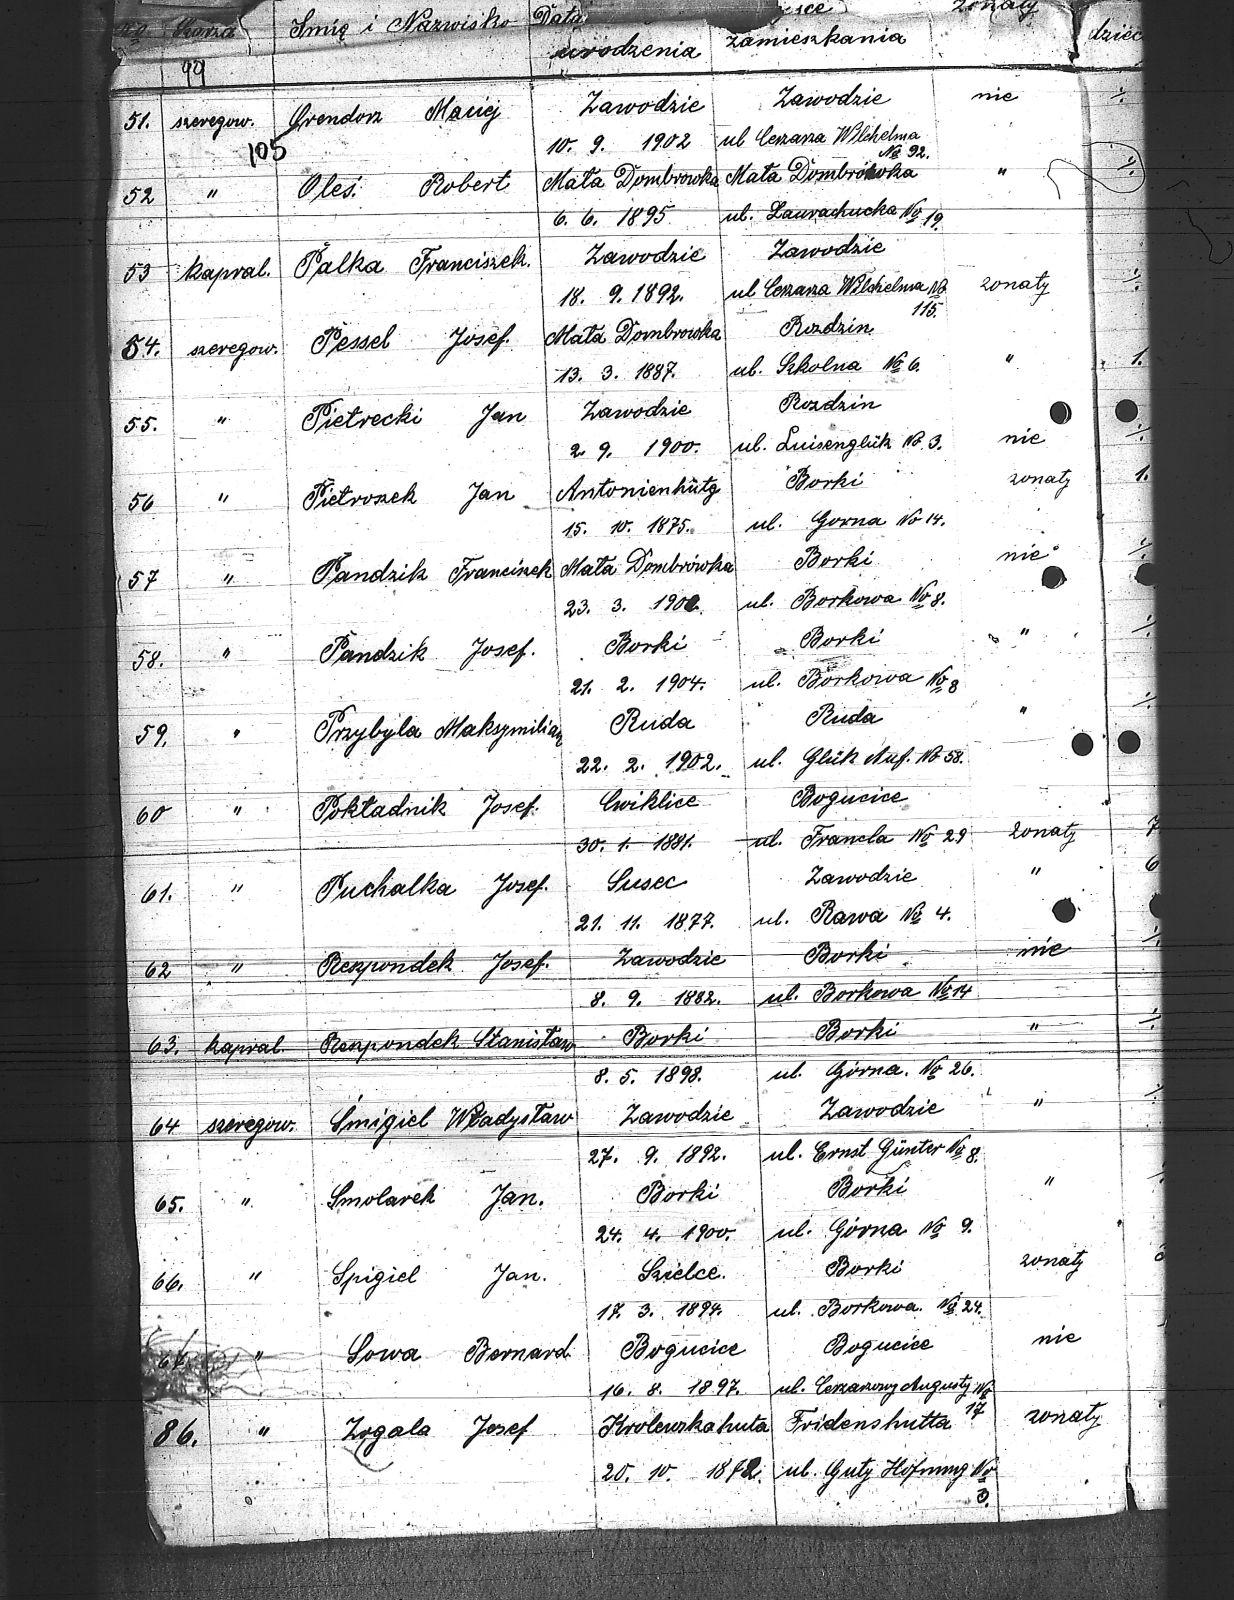 No Imię i Nazwisko Data żonaty
urodzenia zamieszkania dziec
99
51. szeregow. Orendorz Maciej Zawodzie Zawodzie nie ./.
105 10. 9. 1902 ul Cezarza Wilchelma
No 92.
52 " Oleś. Robert Mała Dombrowka Mała Dombrówka " ./.
6. 6. 1895 ul. Laurachucka No 19.
53 kapral. Palka Franciszek. Zawodzie Zawodzie
18. 9. 1892. ul Cezarza Wilchelma No żonaty ./.
115.
54. szeregow. Pessel Josef. Mała Dombrowka Rozdzin
13. 3. 1887. ul. Szkolna No 6. " 1.
55. " Pietrecki Jan Zawodzie Rozdzin
2. 9. 1900. ul. Luisenglük No 3. nie ./.
56 " Pietroszek Jan Antonienhütg Borki zonaty 1.
15. 10. 1875. ul. Gorna No 14.
57 " Pandzik Franciszek Mała Dombrówka Borki nie ./.
23. 3. 190 ul. Borkowa No 8.
58. " Pandzik Josef. Borki Borki " ./.
21. 2. 1904. ul. Borkowa No 8
59. " Przybyla Maksymilian Ruda Ruda " ./.
22. 2. 1902. ul. Glük Auf. No 58.
60 " Pokładnik Josef. Cwiklice Bogucice
30. 1. 1881. ul. Francla No 29 żonaty 7
61. " Puchalka Josef. Susec Zawodzie " 6
21. 11. 1877. ul. Rawa No 4.
62 " Rezpondek Josef. Zawodzie Borki nie ./.
8. 9. 1882. ul. Borkowa No 14
63. kapral. Rezpondek Stanisław Borki Borki " ./.
8. 5. 1898. ul. Górna. No 26.
64 szeregow. Śmigiel Władysław Zawodzie Zawodzie " ./.
27. 9. 1892. ul. Ernst Günter No 8.
65. " Smolarek Jan. Borki Borki " ./.
24. 4. 1900. ul. Górna No 9.
66. " Spigiel Jan. Szielce. Borki zonaty
17. 3. 1894. ul. Borkowa. No 24.
67. " Sowa Bernard Bogucice Bogucice nie
16. 8. 1897. ul. Cezarzowy Augusty No
17
86. " Zogala Josef Krolewskahuta Fridenshutta zonaty
20. 10. 1872. ul. Guty Hofnung No
3.